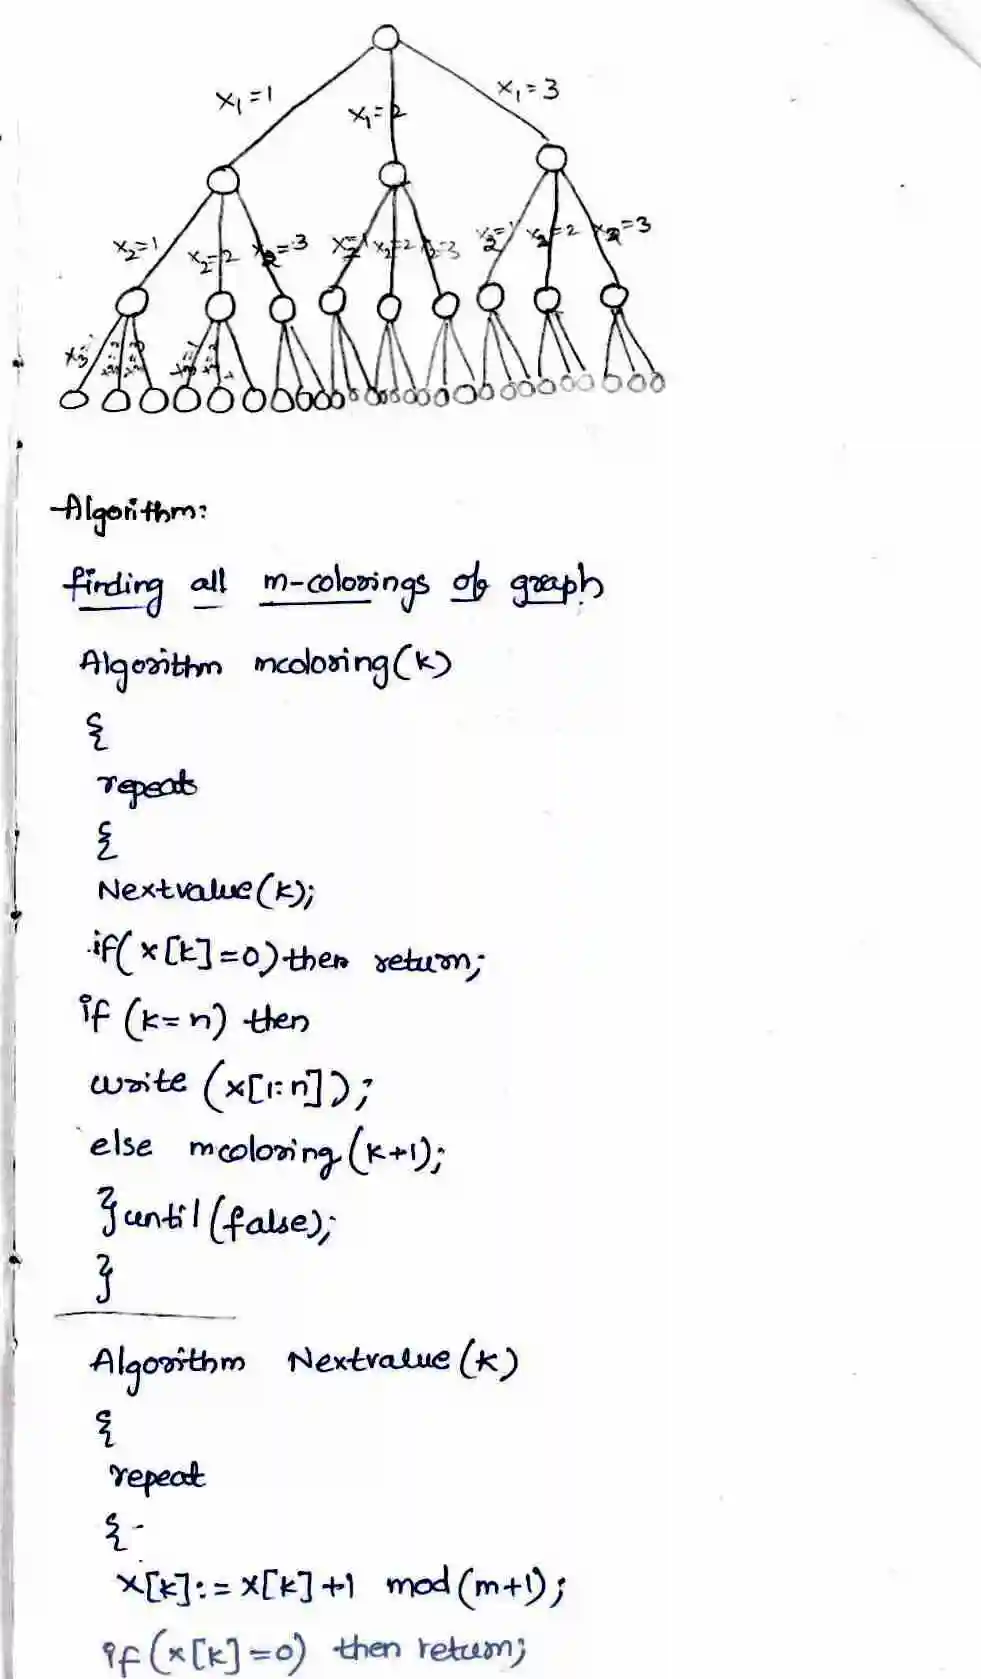 x₁=1 x₁=2 x₁=3
x₂=1 x₂=2 x₂=3 x₂=1 x₂=2 x₂=3 x₂=1 x₂=2 x₂=3
x₃
Algorithm:
finding all m-colorings of graph
Algorithm mcoloring(k)
{
repeat
{
Nextvalue(k);
if(x[k]=0) then return;
if (k=n) then
write (x[1:n]);
else mcoloring(k+1);
}until(false);
}
Algorithm Nextvalue(k)
{
repeat
{
x[k]:= x[k]+1 mod(m+1);
if(x[k]=0) then return;